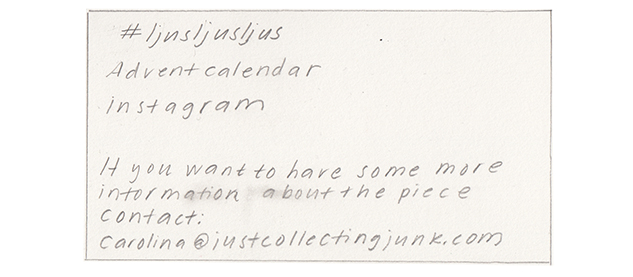 #ljusljusljus
Advent calendar
instagram
If you want to have some more
information about the piece
contact:
carolina@justcollectingjunk.com